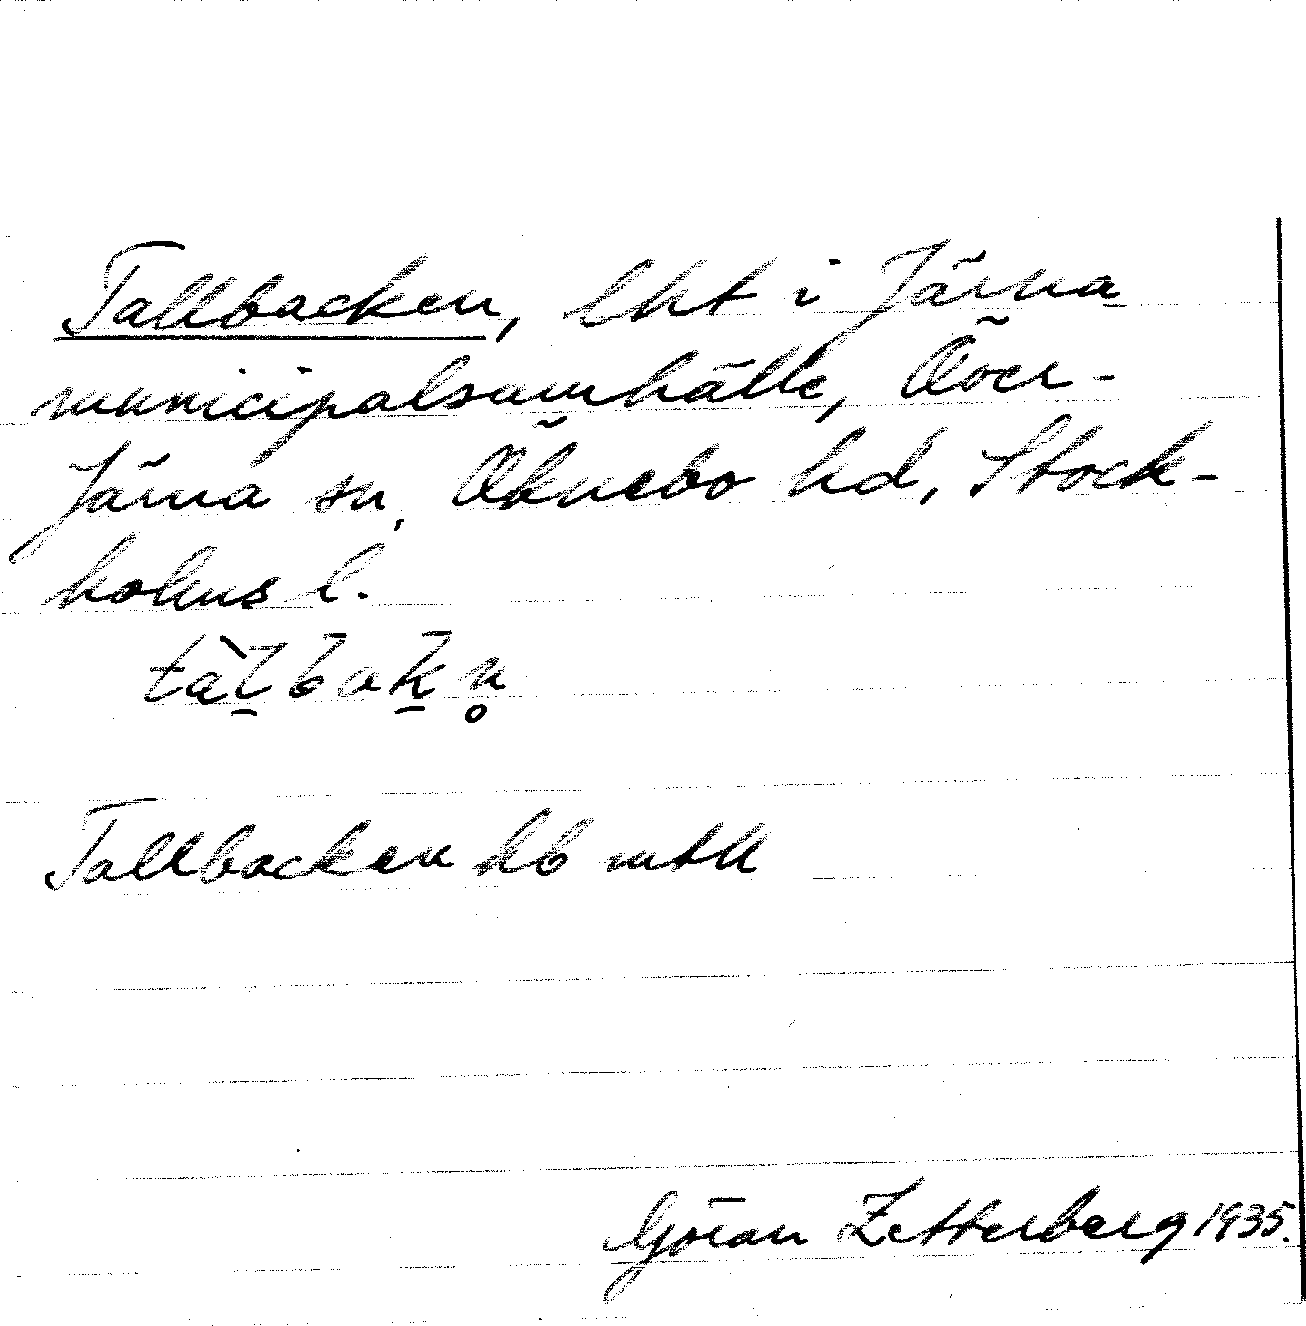 Tallbacken, lht i Järna
municipalsamhälle, Över-
Järna sn, Öknebo hd, Stock-
holms l.
tàl̠bak̠n̥
Tallbacken hb mtl
Göran Zetterberg 1935.